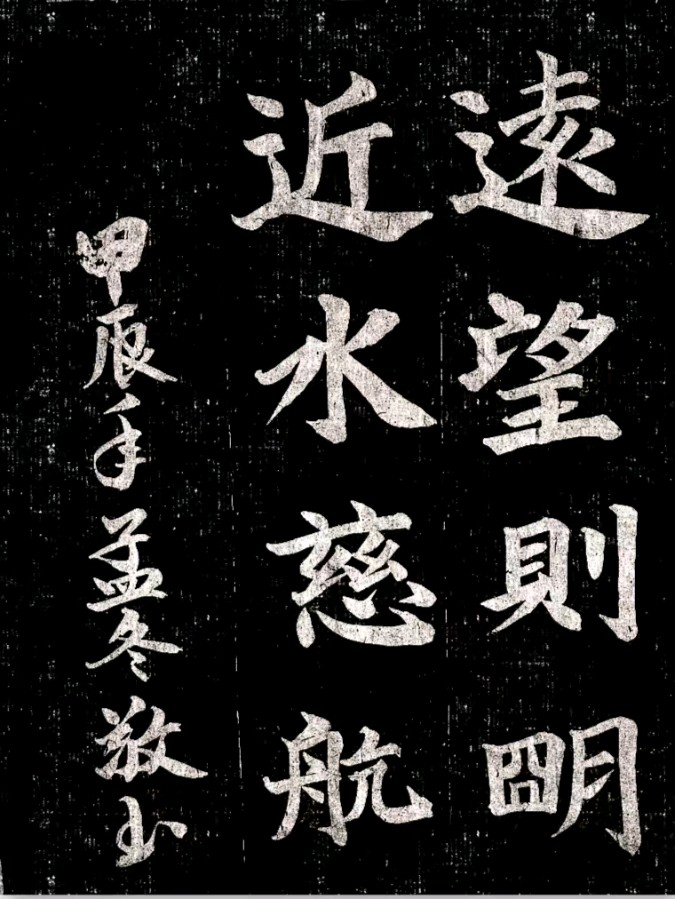 遠望則朙
近水慈航
甲辰年孟冬敬书